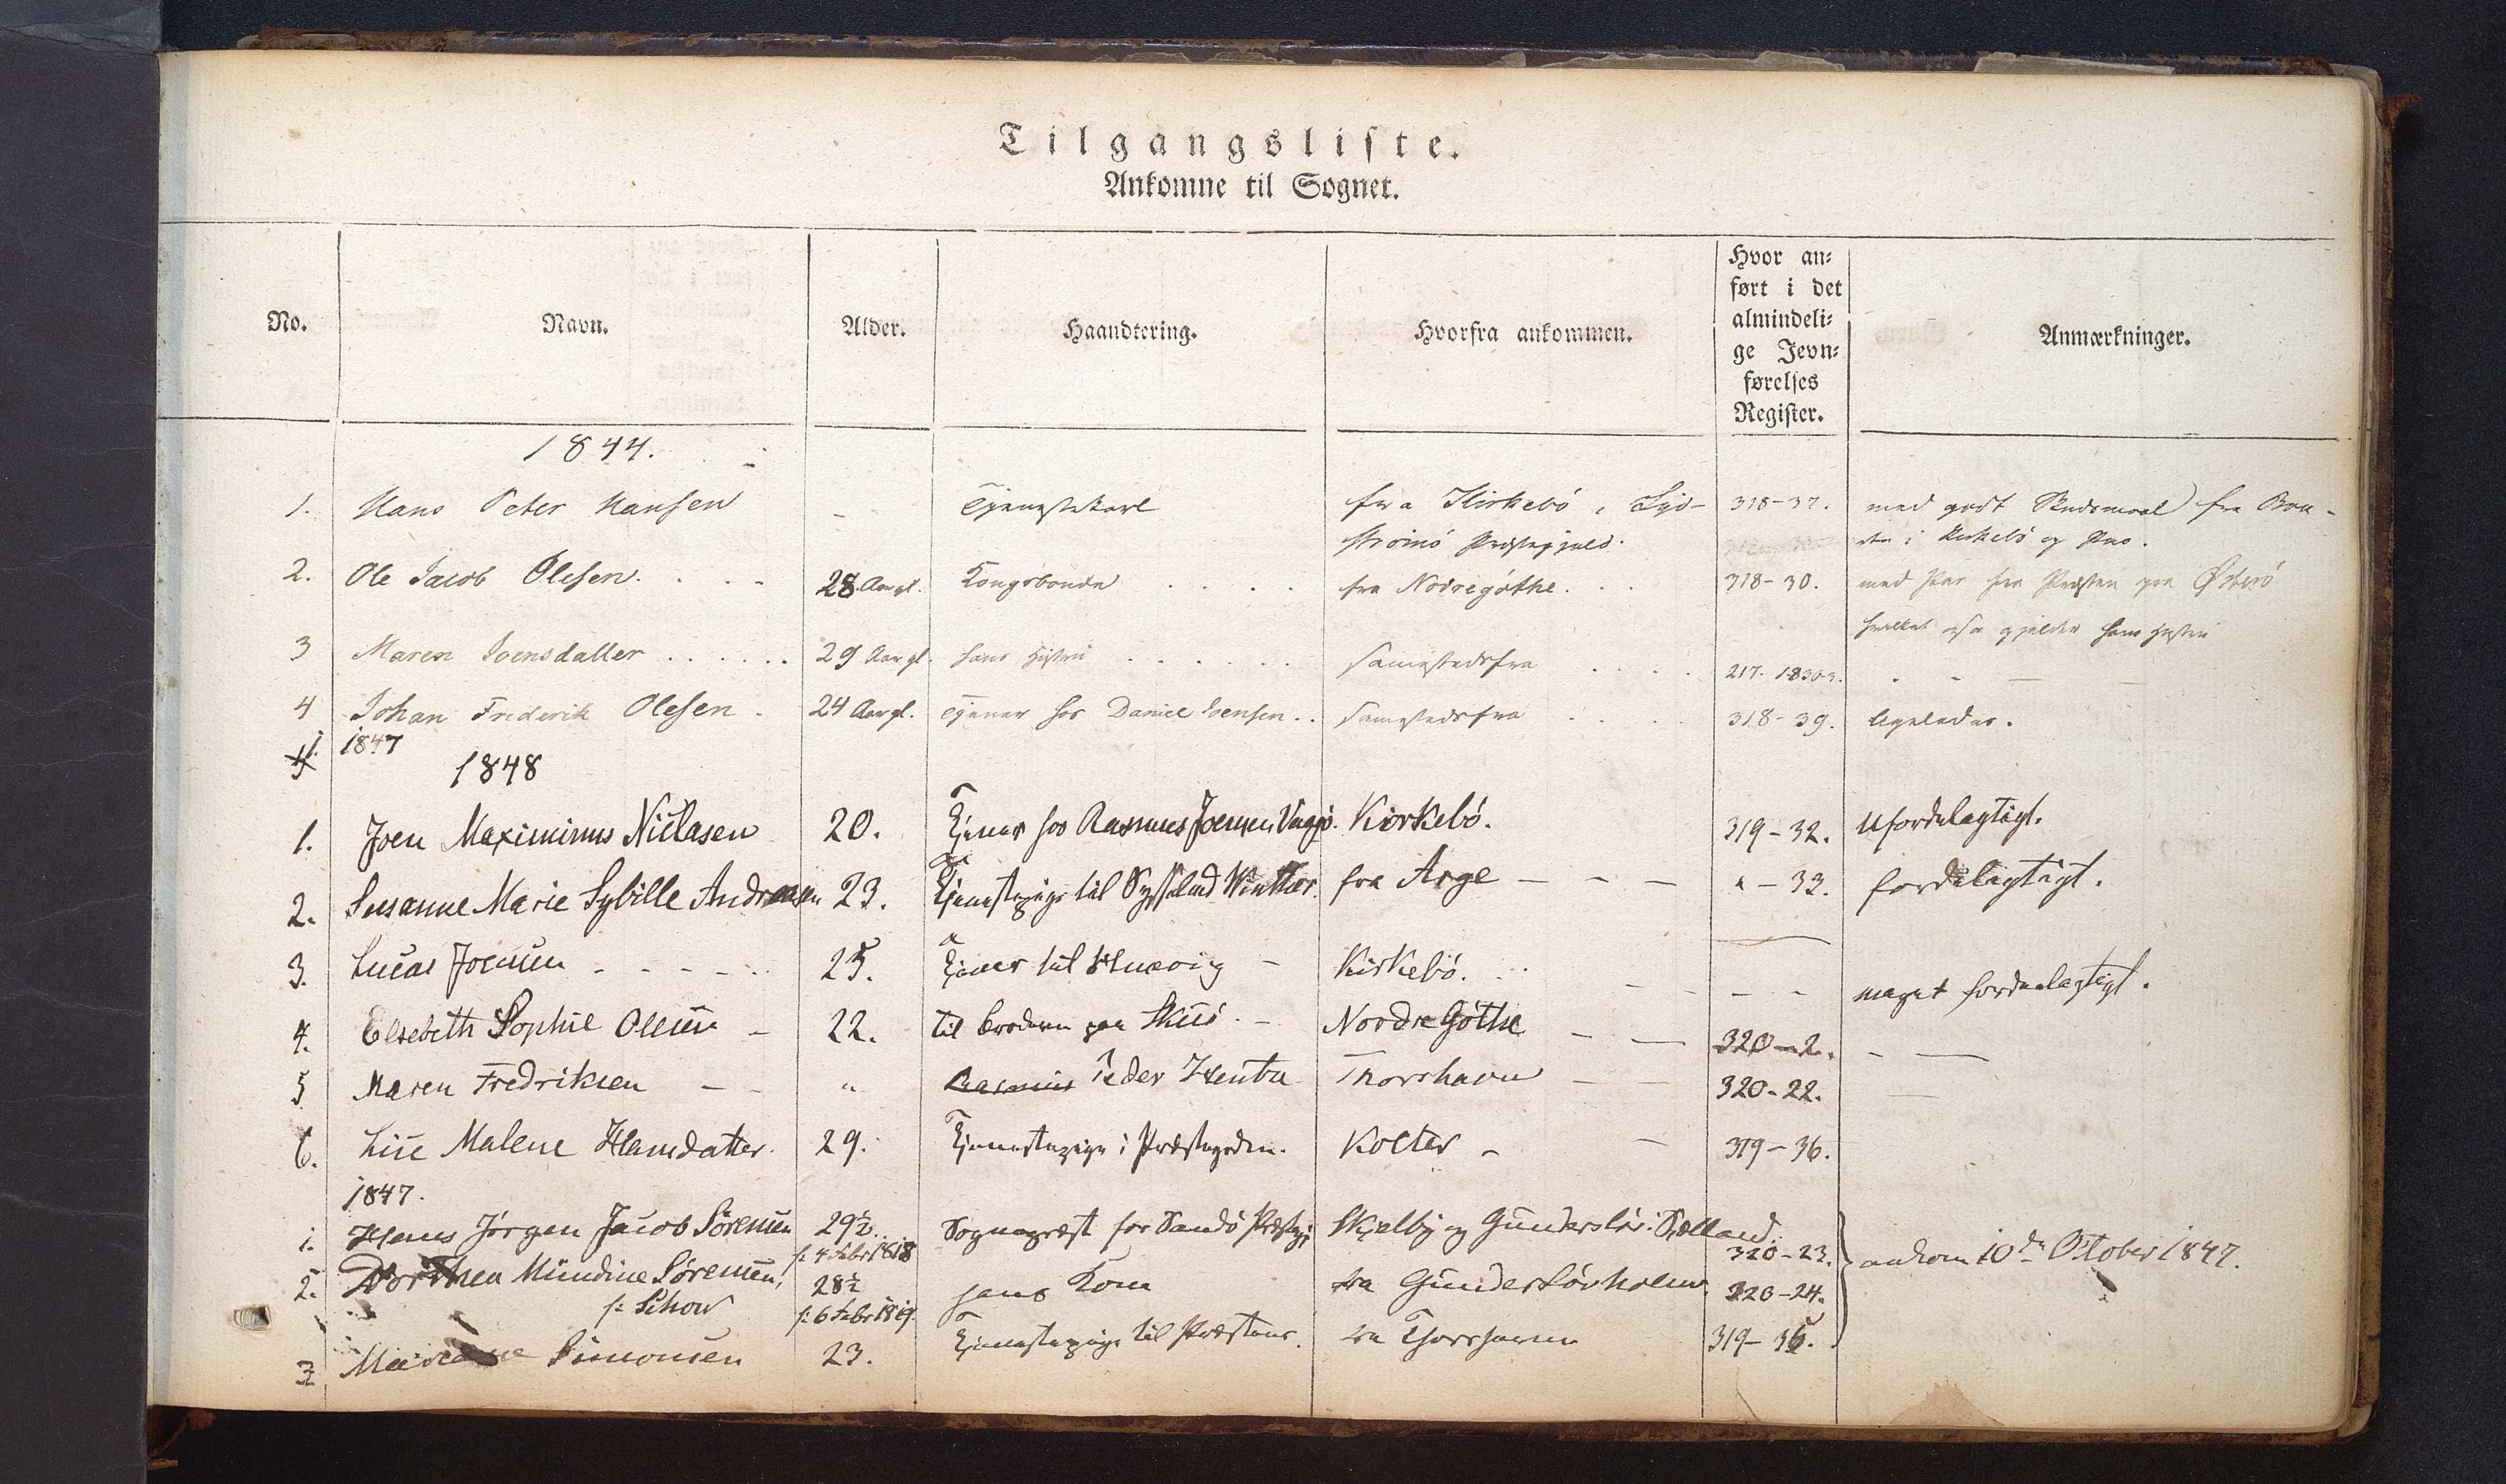 Tilgangsliste.
Ankomne til Sognet.
No. Navn. Alder. Haandtering. Hvorfra ankommen. Hvor an- Anmærkninger.
ført i det
almindeli-
ge Jevn-
førelses
Register.
1844.
1. Hans Peter Hansen - Tjenestekarl fra Kirkebö, Syd- 318-37. med godt Skudsmaal fra Bon-
strömö Præstegjeld. i Kirkebö og
2. Ole Jacob Olesen. 28 Aar gl. Kongsbonde fra Nordregöthe. 318-30. med fra Præsten paa Österö
hvilket gjelder hans Hustru
3 Maren Joensdatter 29 Aar gl. hans Hustru samestedsfra 217.
4 Johan Frederik Olesen 24 Aar gl. tjener hos Daniel Joensen samestedsfra 318-39. ligeledes.
1847
1848
1. Joen Maximinus Niclasen 20. Tjener hos Rasmus Joensen Kirkebö. 319-32. Ufordelagtigt.
2. Susanne Marie Sybille Andreasen 23. Tjenestepige til Sysselmd Winther fra Arge - - - " - 33. fordelagtigt.
3. Lucas Joensen 25. Tjener til Kirkebö. - - - meget fordeelagtigt.
4. Elsebeth Sophie Olesen - 22. til Broderen paa Nordre Göthe - - 320-2. - -
5 Maren Fredriksen - - " Rasmus Peder Thorshavn - 320-22. -
6. Lise Malene Hansdatter. 29. Tjenestepige i Præstegrden. Kolter - - 319-36.
1847.
1. Hans Jörgen Jacob Sörensen 29½. Sognepræst for Sandö Præstgj. Skjelby og Gunderslev i Sælland. 320-23. ankom 10de October 1847.
f: 4 Febr 1818
2. Dorthea Mündine Sørensen, 28½ hans Kone fra Gunderslövholm. 320-24.
f: Schow f: 6 Febr 1819.
3 Simonsen 23. Tjenestepige til Præstens. fra Thorshavn 319-35.